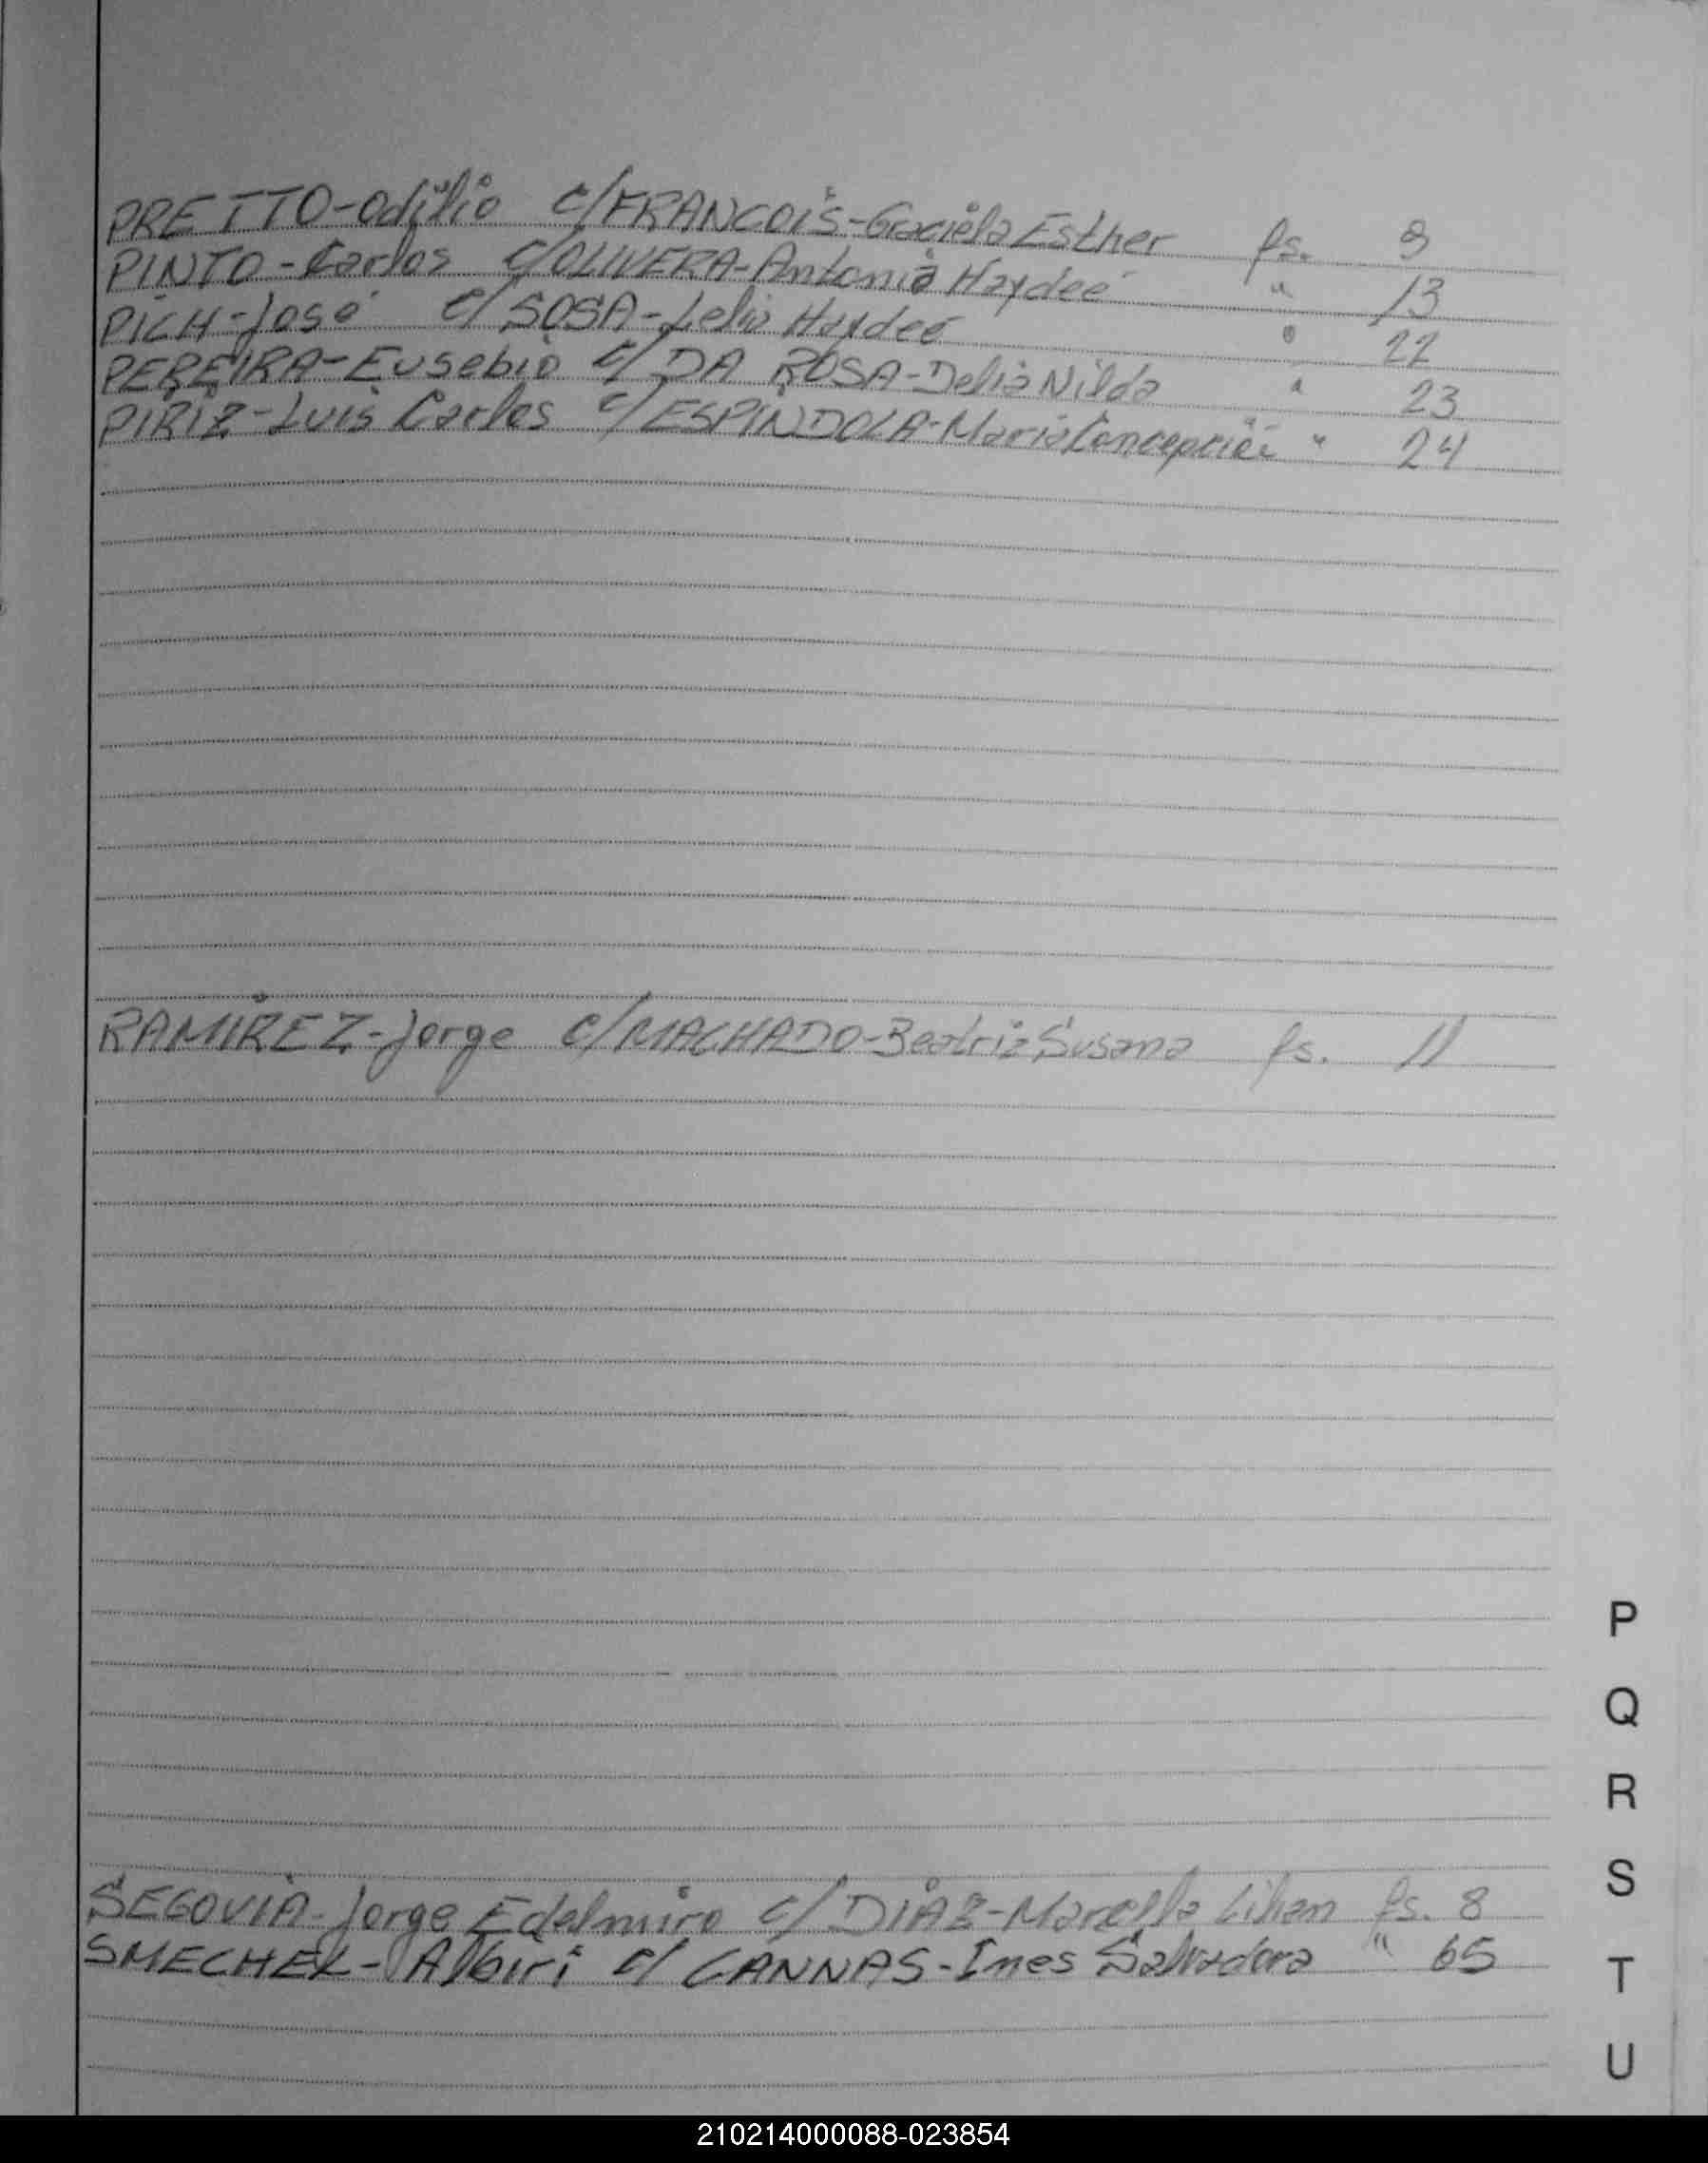 PRETTO-Odilio c/FRANCOIS-Graciela Esther fs. 9
PINTO-Carlos c/OLIVERA-Antonia Haydeé " 13
PICH-José c/SOSA-Lelia Haydeé " 22
PEREIRA-Eusebio c/DA ROSA-Delia Nilda " 23
PIRIZ-Luis Carlos c/ESPINDOLA-Maria Concepción " 24
RAMIREZ-Jorge c/MACHADO-Beatriz Susana fs. 11
P
Q
R
S
T
U
SEGOVIA-Jorge Edelmiro c/DIAZ-Marcella Lilian fs. 8
SMECHEL-Albiri c/CANNAS-Ines Salvadora " 65
210214000088-023854